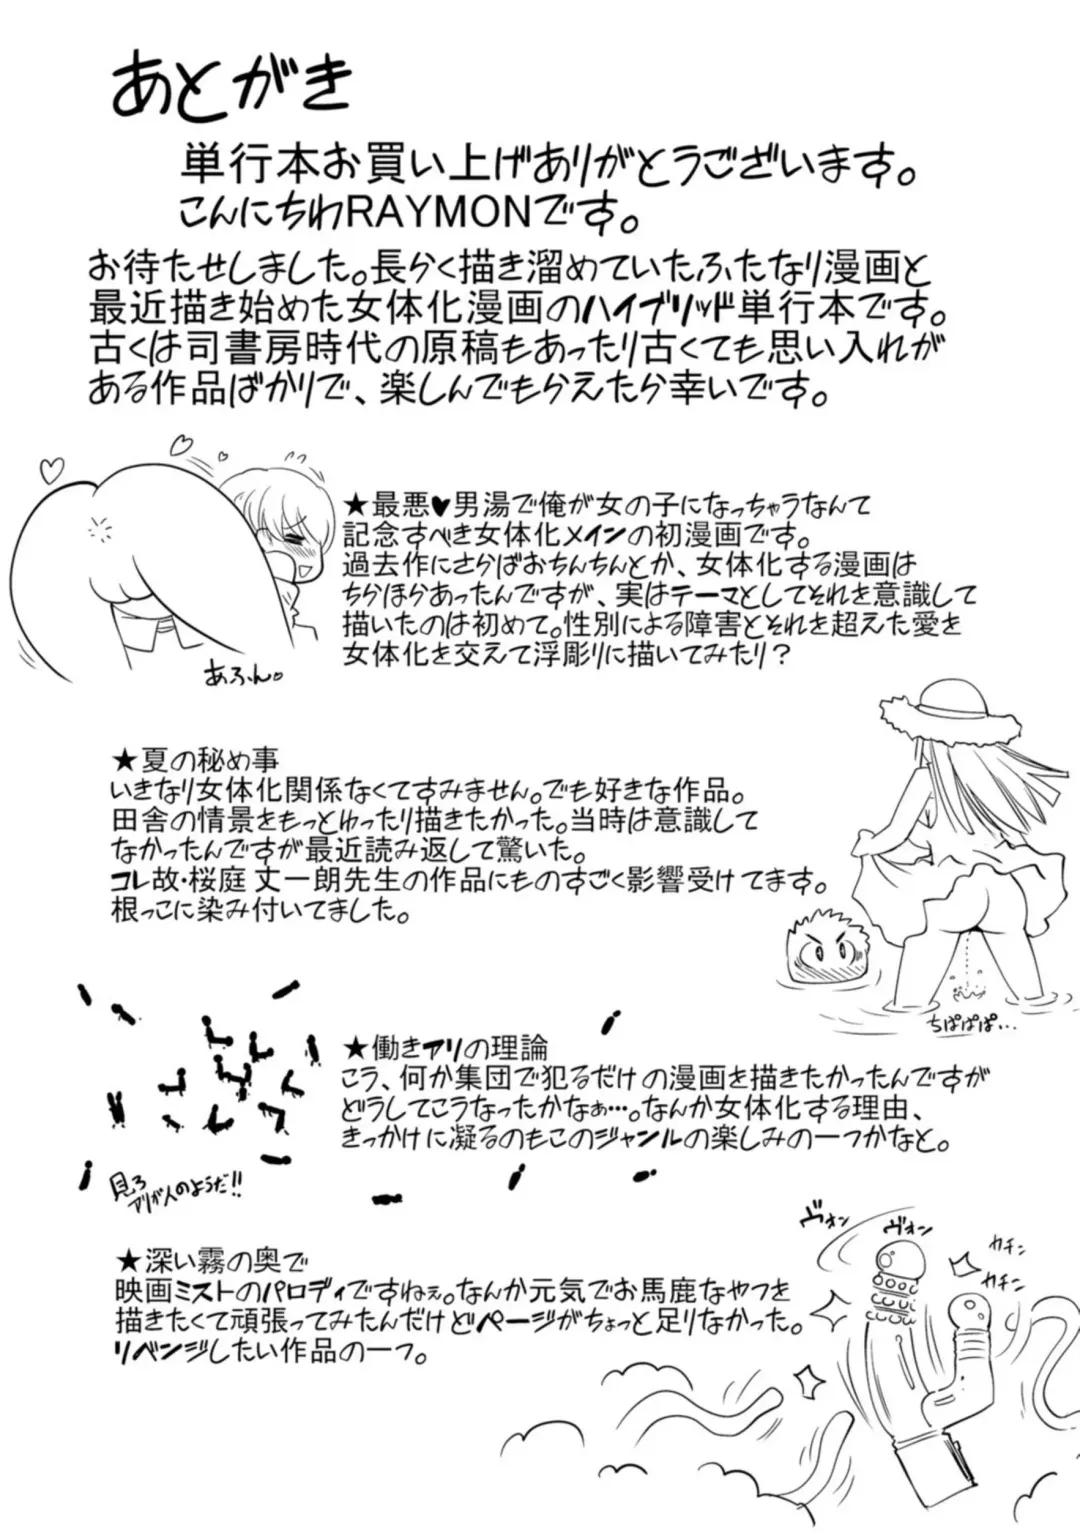 あとがき
単行本お買い上げありがとうございます。
こんにちわRAYMONです。
お待たせしました。長らく描き溜めていたふたなり漫画と
最近描き始めた女体化漫画のハイブリッド単行本です。
古くは司書房時代の原稿もあったり古くても思い入れが
ある作品ばかりで、楽しんでもらえたら幸いです。
★最悪♥男湯で俺が女の子になっちゃうなんて
記念すべき女体化メインの初漫画です。
過去作にさらばおちんちんとか、女体化する漫画は
ちらほらあったんですが、実はテーマとしてそれを意識して
描いたのは初めて。性別による障害とそれを超えた愛を
女体化を交えて浮彫りに描いてみたり？
あふん♡
★夏の秘め事
いきなり女体化関係なくてすみません。でも好きな作品。
田舎の情景をもっとゆったり描きたかった。当時は意識して
なかったんですが最近読み返して驚いた。
コレ故・桜庭 丈一朗先生の作品にものすごく影響受けてます。
根っこに染み付いてました。
ちぱぱぱ…
★働きアリの理論
こう、何か集団で犯るだけの漫画を描きたかったんですが
どうしてこうなったかなぁ…。なんか女体化する理由、
きっかけに凝るのもこのジャンルの楽しみの一つかなと。
見ろ
アリが人のようだ!!
★深い霧の奥で
映画ミストのパロディですねぇ。なんか元気でお馬鹿なやつを
描きたくて頑張ってみたんだけどページがちょっと足りなかった。
リベンジしたい作品の一つ。
ヴォン
ヴォン
カチン
カチン